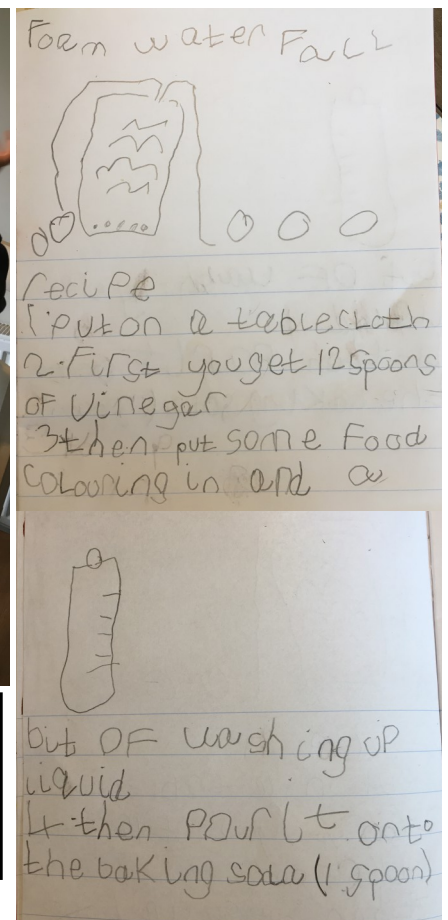 Foam water Fall
recipe
1.put on a tablecloth
2.First you get 12 spoons
OF vinegar
3then put some Food
colouring in and a
bit OF washing up
liquid
4.then pour it onto
the baking soda (1 spoon)